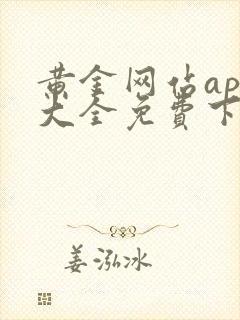 黄金网站ap
大全免费下
姜泓冰